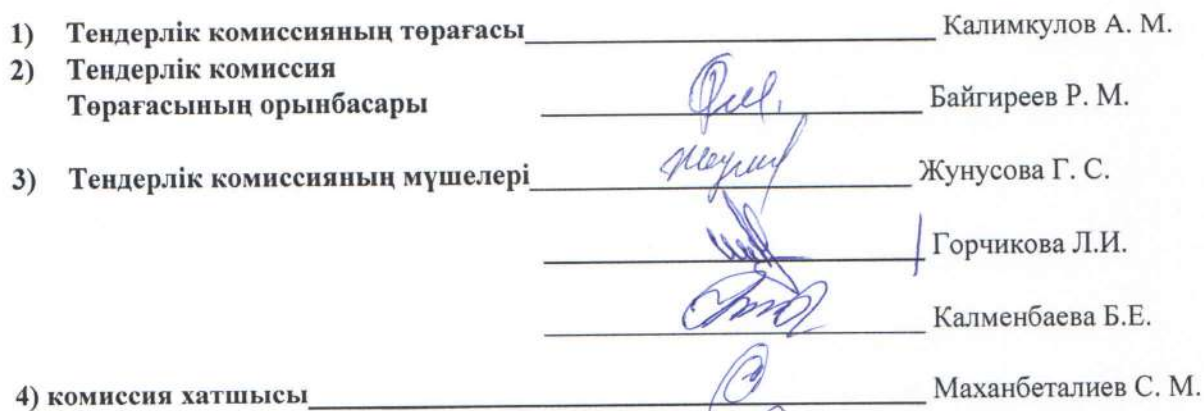 1) Тендерлік комиссияның төрағасы Калимкулов А. М.
2) Тендерлік комиссия
Төрағасының орынбасары Байгиреев Р. М.
3) Тендерлік комиссияның мүшелері Жунусова Г. С.
Горчикова Л.И.
Калменбаева Б.Е.
4) комиссия хатшысы Маханбеталиев С. М.